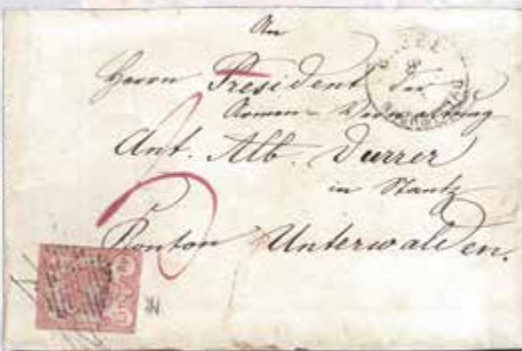 An
Herrn President der
Armen-Verwaltung
Ant. Alb. Durrer
in Stantz
Konton Unterwalden.
BASEL